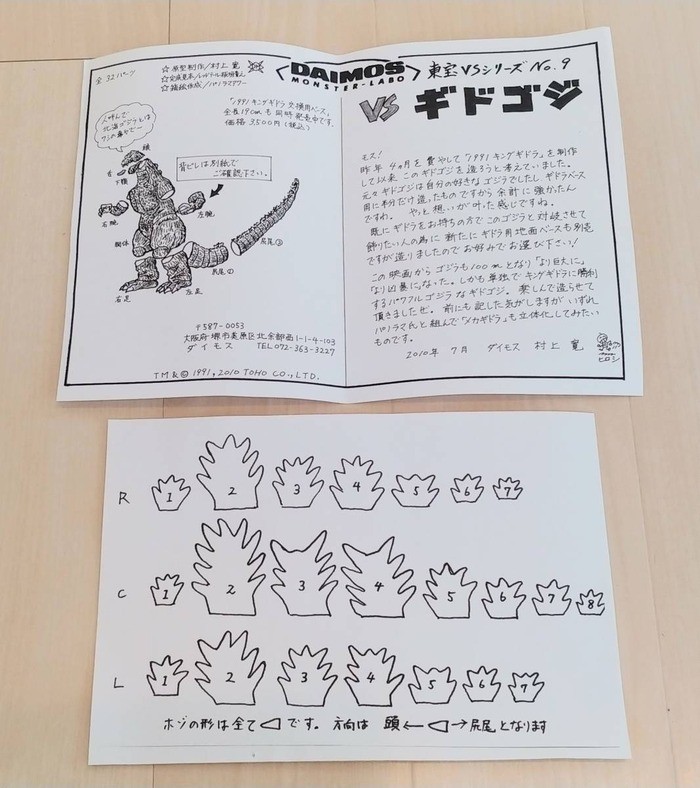 全32パーツ
☆原型制作/村上寛
DAIMOS
MONSTER-LABO
東宝VSシリーズ No.9
VS ギドゴジ
「1991キングギドラ交換用ベース」
全長19cmも同時発売中です。
価格 3,500円(税込)
人呼んで
北海ゴジラとは
ワシの事だぜ〜
頭
舌
下顎
背ビレは別紙で
ご確認下さい。
右腕
左腕
胴体
尻尾①
尻尾②
右足
左足
〒587-0053
大阪府堺市美原区北余部西1-1-4-103
ダイモス TEL 072-363-3227
TM&© 1991, 2010 TOHO CO., LTD.
モス!
昨年4ヵ月を費やして「1991キングギドラ」を制作
して以来このギドゴジを造ろうと考えていました。
元々ギドゴジは自分の好きなゴジラでしたし、ギドラベース
用に半分だけ造ったものですから余計に強かったん
ですね。やっと想いが叶った感じですね。
既にギドラをお持ちの方でこのゴジラと対峙させて
飾りたい人の為に新たにギドラ用地面ベースも別売
ですが造りましたのでお好みでお選び下さい!
この映画からゴジラも100mとなり「より巨大に」
「より凶暴に」なった。しかも単独でキングギドラに勝利
するパワフルゴジラなギドゴジ。楽しんで造らせて
頂きましたぜ。前にも記した気がしますがいずれ
パノラマ氏と組んで「メカギドラ」も立体化してみたい
ものです。
2010年 7月 ダイモス 村上 寛
ヒロシ
R 1 2 3 4 5 6 7
C 1 2 3 4 5 6 7 8
L 1 2 3 4 5 6 7
ホゾの形は全て◁です。方向は 頭←◁→尻尾となります